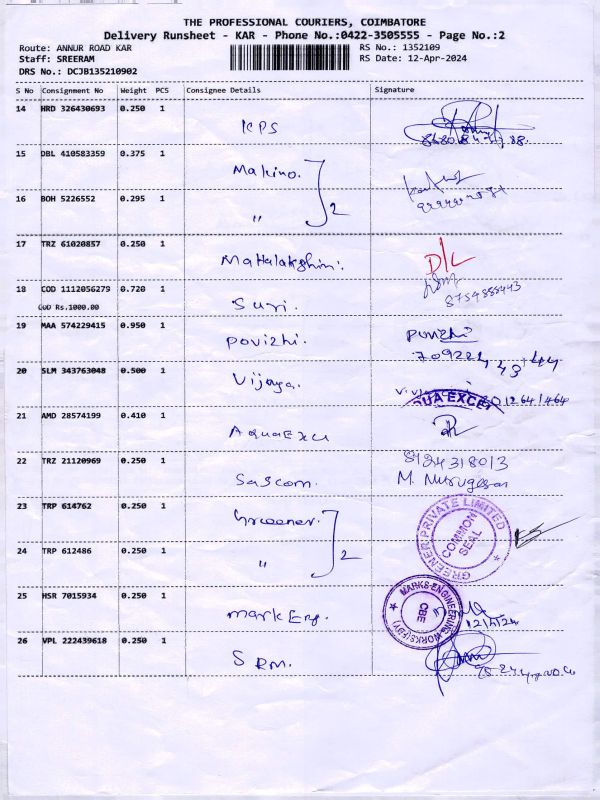 THE PROFESSIONAL COURIERS, COIMBATORE
Delivery Runsheet - KAR - Phone No.:0422-3505555 - Page No.:2
Route: ANNUR ROAD KAR
RS No.: 1352109
Staff: SREERAM
RS Date: 12-Apr-2024
DRS No.: DCJB135210902
S No Consignment No Weight PCS Consignee Details Signature
14 HRD 326430693 0.250 1
KPS
15 DBL 410583359 0.375 1
Makino.
16 BOH 5226552 0.295 1
" 2
17 TRZ 61020857 0.250 1
Mahalakshmi. D/L
18 COD 1112056279 0.720 1
8754888443
COD Rs.1000.00
Suri.
19 MAA 574229415 0.950 1
Povizhi. Povizhi
20 SLM 343763048 0.500 1
Vijaya.
21 AMD 28574199 0.410 1
AQUA EXCEL
AquaExcl
22 TRZ 21120969 0.250 1
8124318013
Sascom. M. Murugesan
23 TRP 614762 0.250 1
Greener. GREENER PRIVATE LIMITED
COMMON SEAL
24 TRP 612486 0.250 1
" 2
25 HSR 7015934 0.250 1
MARKS ENGINEERING WORKS (FDY)
CBE
mark Eng. 12/4/24
26 VPL 222439618 0.250 1
SRM.